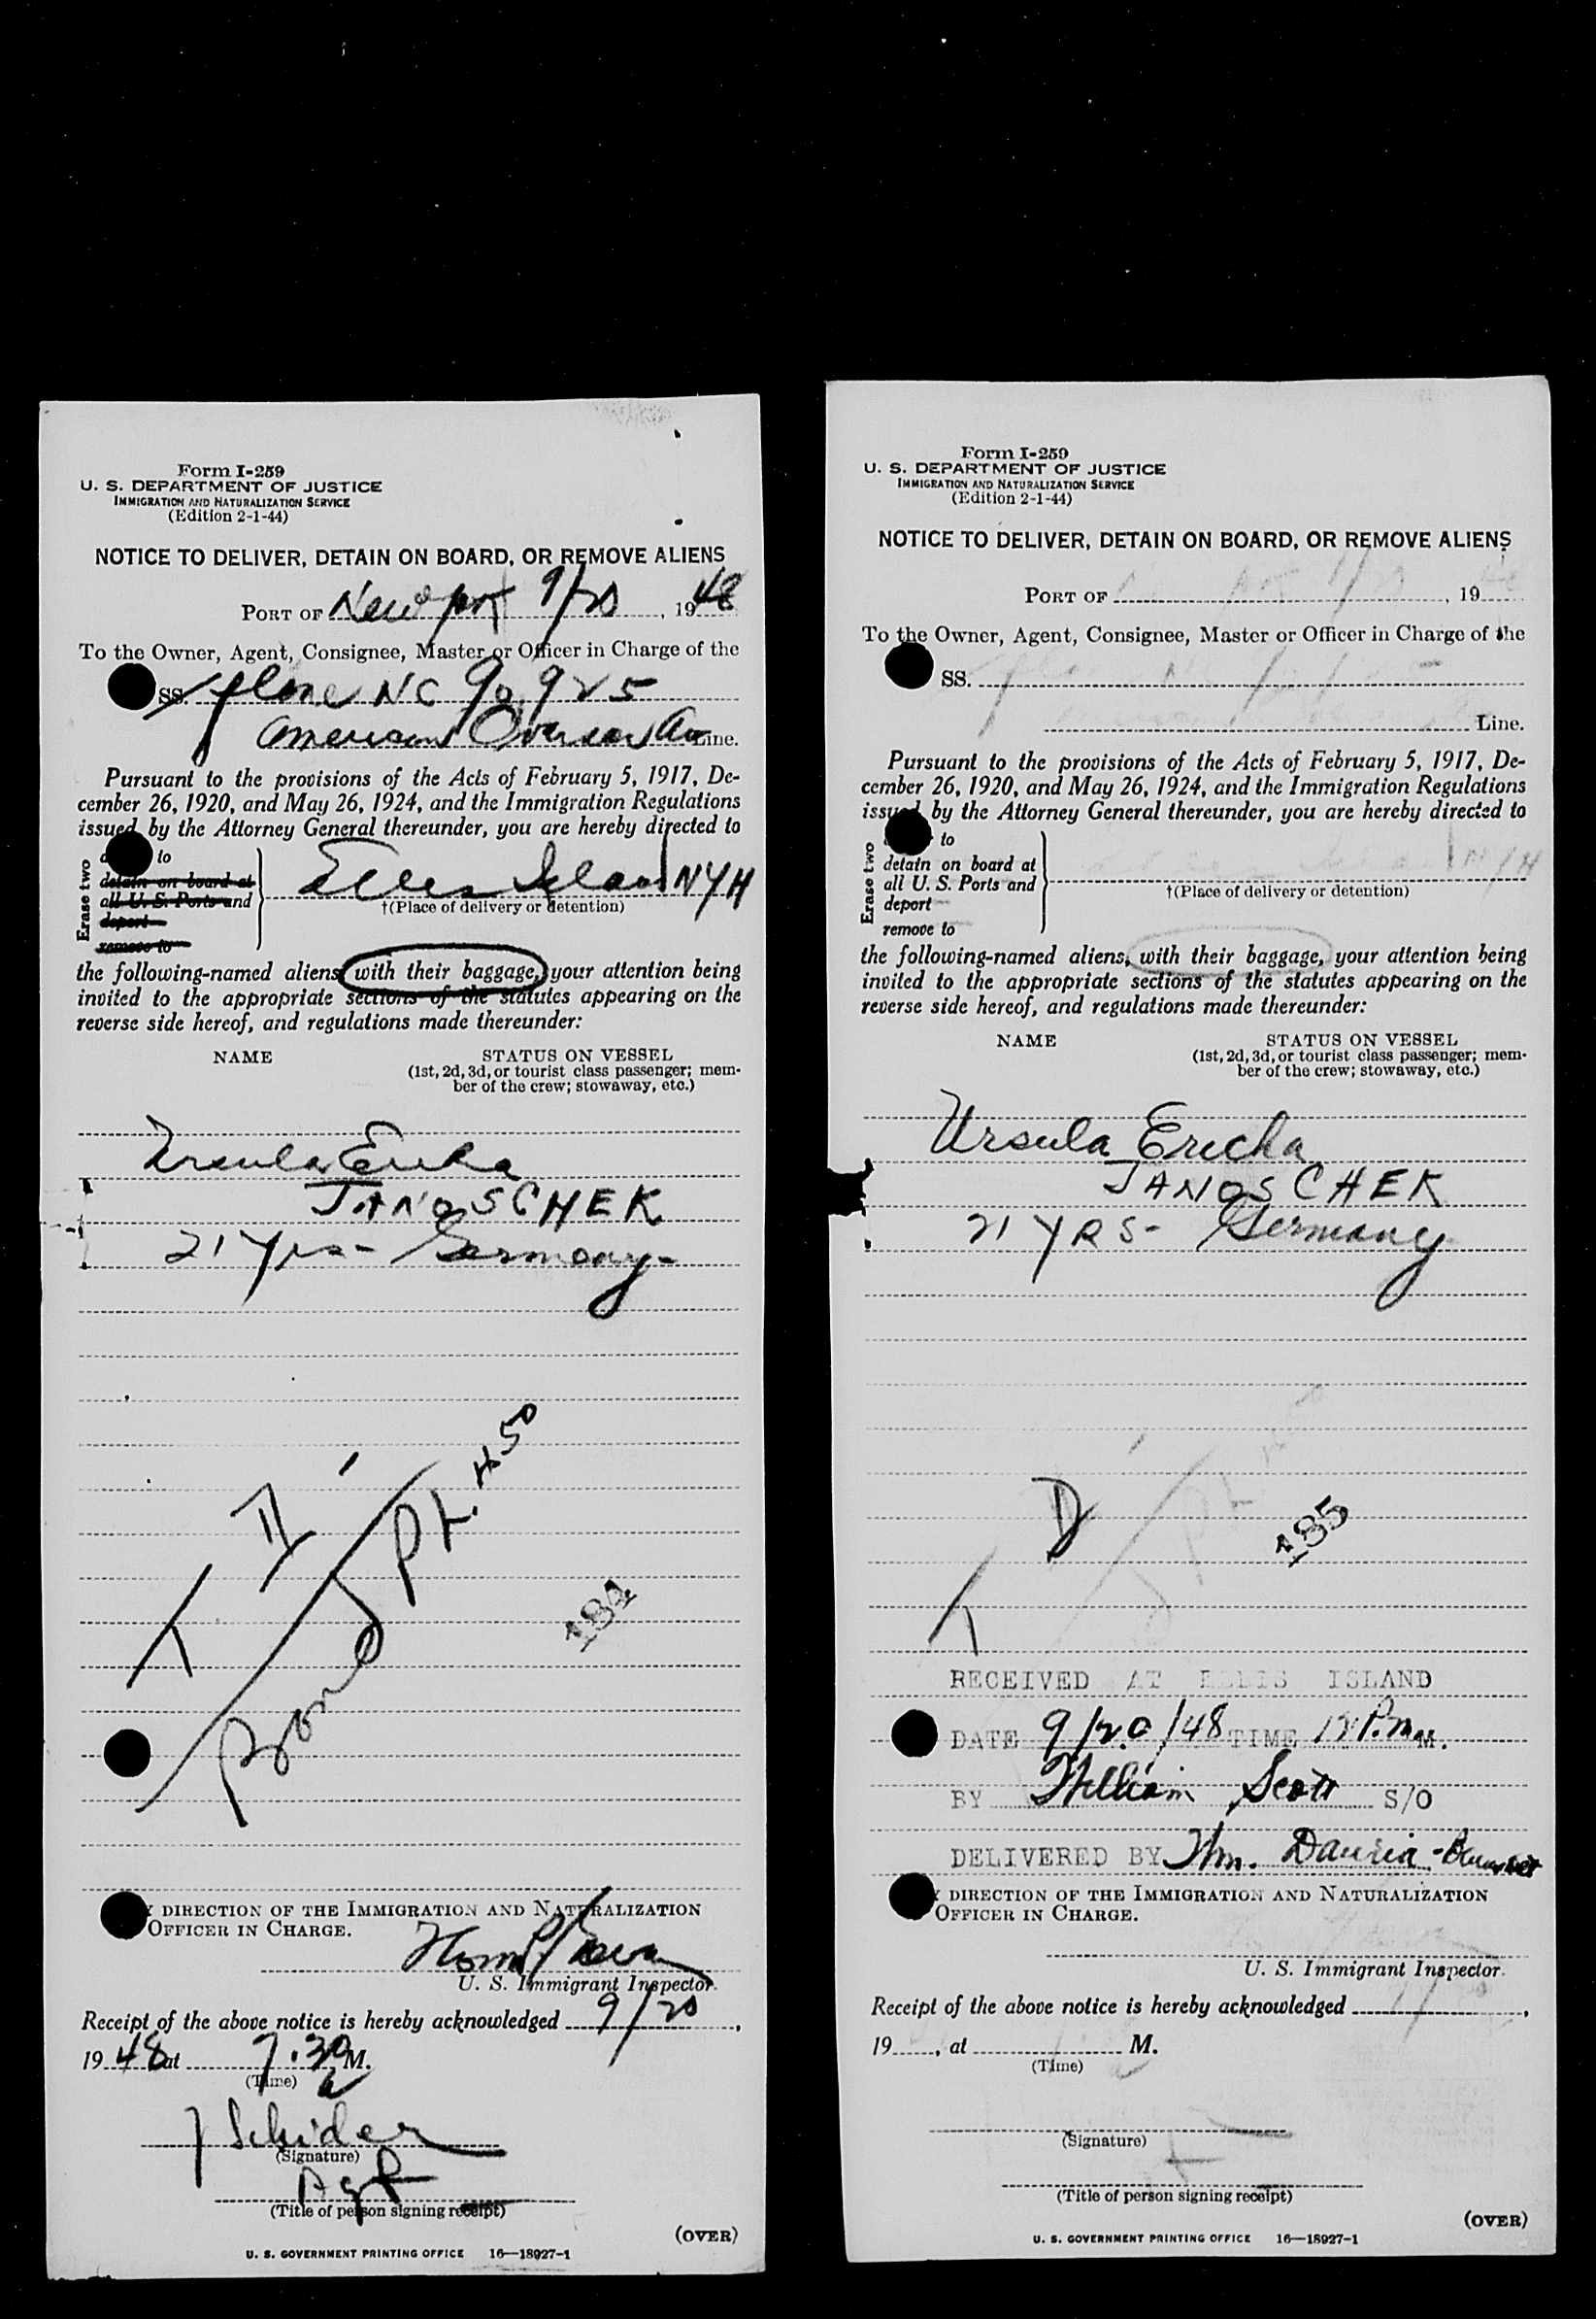 Form I-259
U. S. DEPARTMENT OF JUSTICE
IMMIGRATION AND NATURALIZATION SERVICE
(Edition 2-1-44)
NOTICE TO DELIVER, DETAIN ON BOARD, OR REMOVE ALIENS
PORT OF New York 9/20, 1948
To the Owner, Agent, Consignee, Master or Officer in Charge of the
SS. plane NC 90925
American Overseas Air Line.
Pursuant to the provisions of the Acts of February 5, 1917, De-
cember 26, 1920, and May 26, 1924, and the Immigration Regulations
issued by the Attorney General thereunder, you are hereby directed to
Erase two
to
detain on board at
all U. S. Ports and
deport
remove to
Ellis Island NYH
†(Place of delivery or detention)
the following-named aliens, with their baggage, your attention being
invited to the appropriate sections of the statutes appearing on the
reverse side hereof, and regulations made thereunder:
NAME STATUS ON VESSEL
(1st, 2d, 3d, or tourist class passenger; mem-
ber of the crew; stowaway, etc.)
Ursula Ericka
JANOSCHEK
21 yrs - Germany -
184
DIRECTION OF THE IMMIGRATION AND NATURALIZATION
OFFICER IN CHARGE.
U. S. Immigrant Inspector.
Receipt of the above notice is hereby acknowledged 9/20,
1948 at 7:30 M.
(Time) a
J Schider
(Signature)
Agt
(Title of person signing receipt)
(OVER)
U. S. GOVERNMENT PRINTING OFFICE 16—18927-1
Form I-259
U. S. DEPARTMENT OF JUSTICE
IMMIGRATION AND NATURALIZATION SERVICE
(Edition 2-1-44)
NOTICE TO DELIVER, DETAIN ON BOARD, OR REMOVE ALIENS
PORT OF , 19
To the Owner, Agent, Consignee, Master or Officer in Charge of the
SS.
Line.
Pursuant to the provisions of the Acts of February 5, 1917, De-
cember 26, 1920, and May 26, 1924, and the Immigration Regulations
issued by the Attorney General thereunder, you are hereby directed to
Erase two
to
detain on board at
all U. S. Ports and
deport
remove to
†(Place of delivery or detention)
the following-named aliens, with their baggage, your attention being
invited to the appropriate sections of the statutes appearing on the
reverse side hereof, and regulations made thereunder:
NAME STATUS ON VESSEL
(1st, 2d, 3d, or tourist class passenger; mem-
ber of the crew; stowaway, etc.)
Ursula Ericha
JANOSCHEK
21 YRS - Germany
D
185
RECEIVED AT ELLIS ISLAND
DATE 9/20/48 TIME 12 P.m M.
BY William Scott S/O
DELIVERED BY Wm. Dauria
DIRECTION OF THE IMMIGRATION AND NATURALIZATION
OFFICER IN CHARGE.
U. S. Immigrant Inspector.
Receipt of the above notice is hereby acknowledged ,
19 , at M.
(Time)
(Signature)
(Title of person signing receipt)
(OVER)
U. S. GOVERNMENT PRINTING OFFICE 16—18927-1